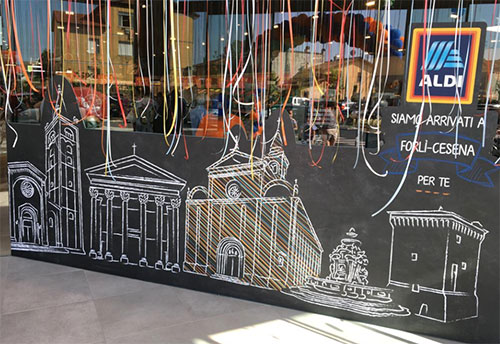 ALDI
SIAMO ARRIVATI A
FORLÌ-CESENA
PER TE